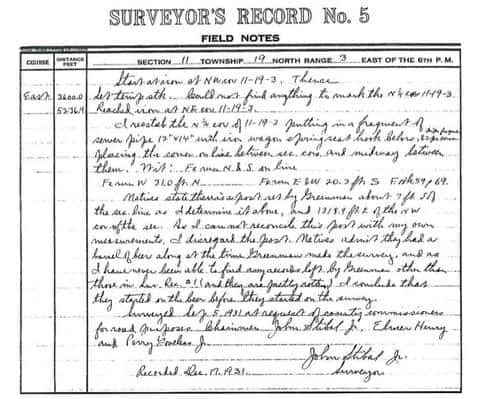 SURVEYOR'S RECORD No. 5
FIELD NOTES
COURSE DISTANCE FEET SECTION 11 TOWNSHIP 19 NORTH RANGE 3 EAST OF THE 6TH P. M.
Start at iron at NW cor 11-19-3. Thence
East 2600.0 Set temp stk. Could not find anything to mark the N¼ cor 11-19-3.
5236.9 Reached iron at NE cor 11-19-3.
I reestab the N¼ cor of 11-19-3 putting in a fragment of
sewer pipe 12"x14" with iron wagon spring seat hook below,
placing the corner on line between sec. cors. and midway between
them. Wit: Fence N & S on line
Fence W 31.0 ft. N Fence E & W 20.2 ft S
Natives state there is a post set by Greenman about 7 ft. S of
the sec line as I determine it above, and 1319.9 ft E of the NW
cor of the sec. As I can not reconcile this post with my own
measurements, I disregard the post. Natives admit they had a
barrel of beer along at the time Greenman made the survey, and as
I have never been able to find any records left by Greenman other than
those in Sur. Rec. #1 (and they are pretty rotten) I conclude that
they started on the beer before they started on the survey.
Surveyed Sep 5, 1931 at request of county commissioners
for road purposes. Chainmen John Stibal Jr., Elmer Henry
and Perry Jr.
John Stibal Jr.
Surveyor
Recorded Dec. 17, 1931.